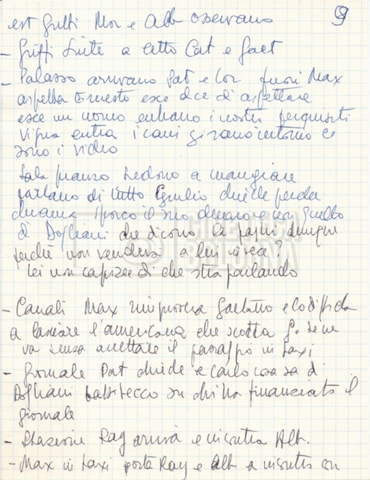 9
est Gritti Mor e Alb osservano
- Gritti Suite a letto Cat e Gaet
- Palazzo arrivano Pat e Cor fuori Max
aspetta Ernesto esce dice di aspettare
esce un uomo entrano i nostri perquisiti
Vigna entra i cani girano intorno ce
sono i video
Sala pranzo siedono a mangiare
parlano di tutto Giulio chiede perché
chiama sporco il suo denaro e non quello
di Dogliani che dicono La pashi dunque
perché non vendersi a lui invece?
lei non capisce di che stia parlando
- Canali Max rimprovera Gaetano e lo diffida
a lasciare l'americana che scotta G. se ne
va senza accettare il passaggio in taxi
- Giornale Pat chiede a Carlo cosa sa di
Dogliani batti becco su chi ha finanziato il
giornale
- Stazione Ray arriva e incontra Alb.
- Max in taxi porta Ray e Alb a incontro con